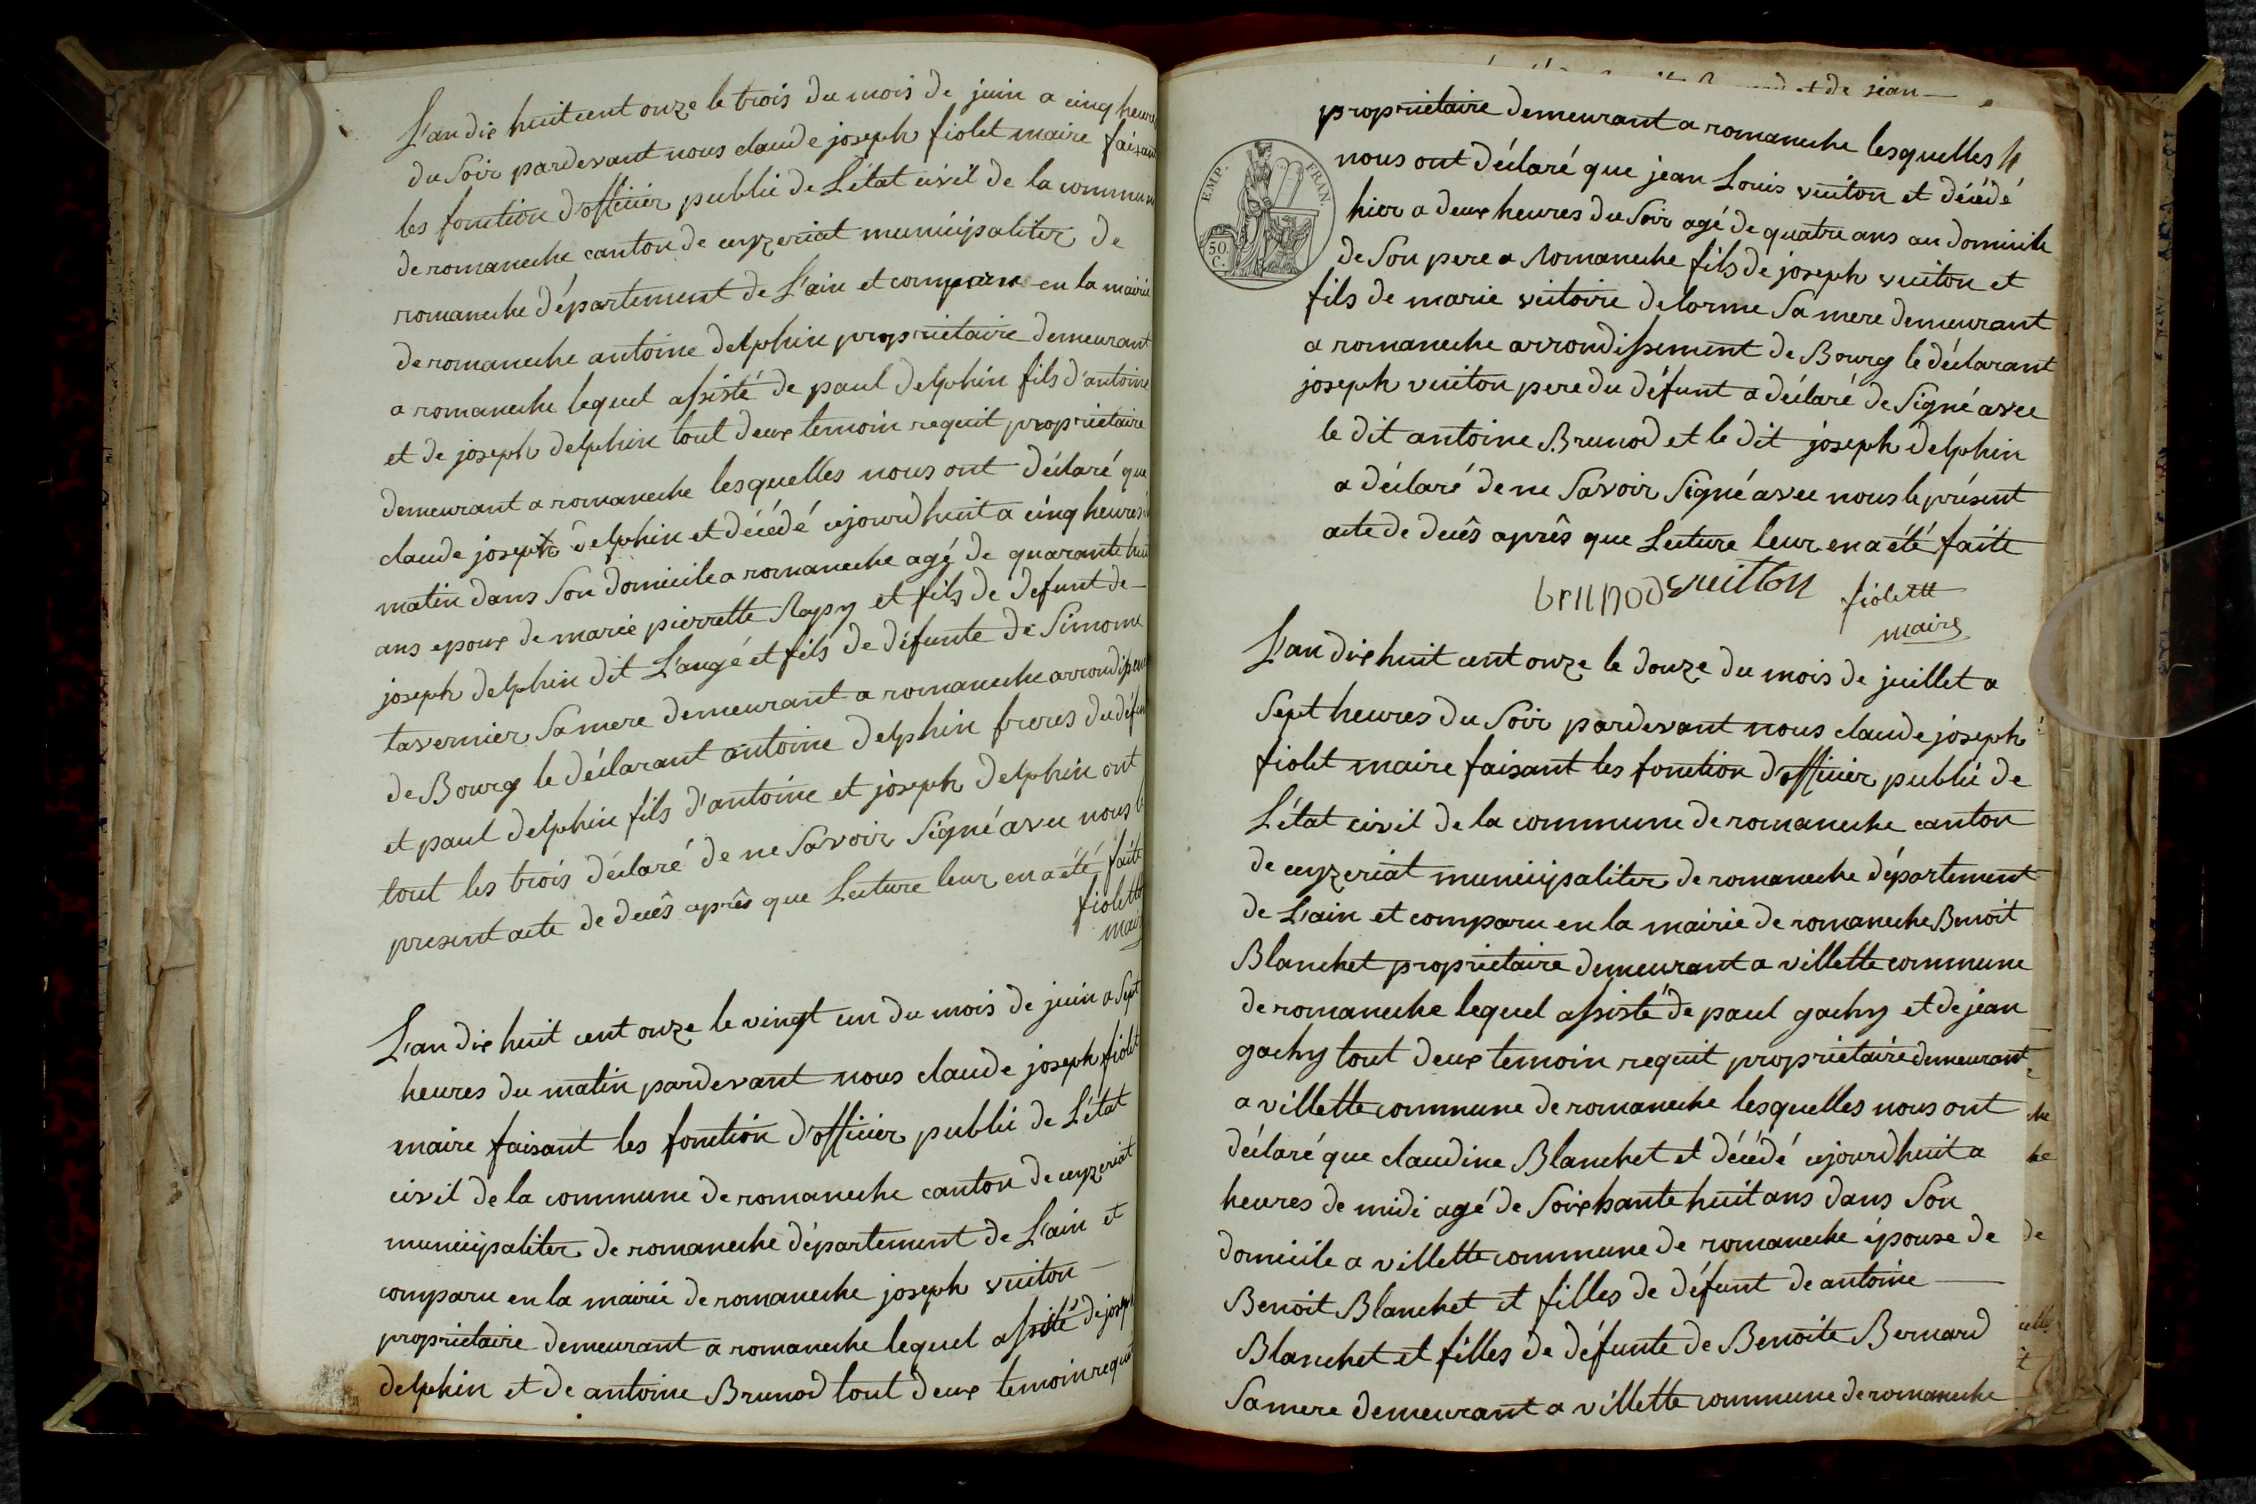 L'an dix huit cent onze le trois du mois de juin a cinq heures
du Soir pardevant nous claude joseph fiolet maire faisant
les fonction d'officier public de L'état civil de la commune
de romaneche canton de ceyzeriat municipaliter de
romaneche département de L'ain et comparu en la mairie
de romaneche antoine delphin propriétaire demeurant
a romaneche lequel assisté de paul delphin fils d'antoine
et de joseph delphin tout deux temoin requit propriétaire
demeurant a romaneche lesquelles nous ont déclaré que
claude joseph delphin et décédé cejourdhuit a cinq heures
matin dans Son domicile a romaneche agé de quarante huit
ans epoux de marie pierrette Rapy et fils de defunt de
joseph delphin dit L'angé et fils de défunte de Simone
tavernier Sa mere demeurant a romaneche arrondissement
de Bourg le déclarant antoine delphin freres du défunt
et paul delphin fils d'antoine et joseph delphin ont
tout les trois déclaré de ne Savoir Signé avec nous le
present acte de decês aprês que Lecture leur en a été faite
fiolett
maire
L'an dix huit cent onze le vingt un du mois de juin a Sept
heures du matin pardevant nous claude joseph fiolet
maire faisant les fonction d'officier public de L'état
civil de la commune de romaneche canton de ceyzeriat
municipaliter de romaneche département de L'ain et
comparu en la mairie de romaneche joseph vuiton
propriétaire demeurant a romaneche lequel assisté de joseph
delphin et de antoine Brunod tout deux temoin requit
et de jean
EMP. FRAN.
50 C.
propriétaire demeurant a romaneche lesquelles
nous ont déclaré que jean Louis vuiton et décédé
hier a deux heures du Soir agé de quatre ans au domicile
de Son pere a Romaneche fils de joseph vuiton et
fils de marie victoire delorme Sa mere demeurant
a romaneche arrondissement de Bourg le déclarant
joseph vuiton pere du défunt a déclaré de Signé avec
le dit antoine Brunod et le dit joseph delphin
a déclaré de ne Savoir Signé avec nous le présent
acte de decês aprês que Lecture leur en a été faite
brunod vuitton fiolett
maire
L'an dix huit cent onze le douze du mois de juillet a
Sept heures du Soir pardevant nous claude joseph
fiolet maire faisant les fonction d'officier public de
L'état civil de la commune de romaneche canton
de ceyzeriat municipaliter de romaneche département
de L'ain et comparu en la mairie de romaneche Benoit
Blanchet propriétaire demeurant a villette commune
de romaneche lequel assisté de paul gachy et de jean
gachy tout deux temoin requit propriétaire demeurant
a villette commune de romaneche lesquelles nous ont
déclaré que claudine Blanchet et décédé cejourdhuit a
heures de midi agé de Soixhante huit ans dans Son
domicile a villette commune de romaneche épouse de
Benoit Blanchet et filles de défunt de antoine
Blanchet et filles de défunte de Benoite Bernard
Sa mere demeurant a villette commune de romaneche